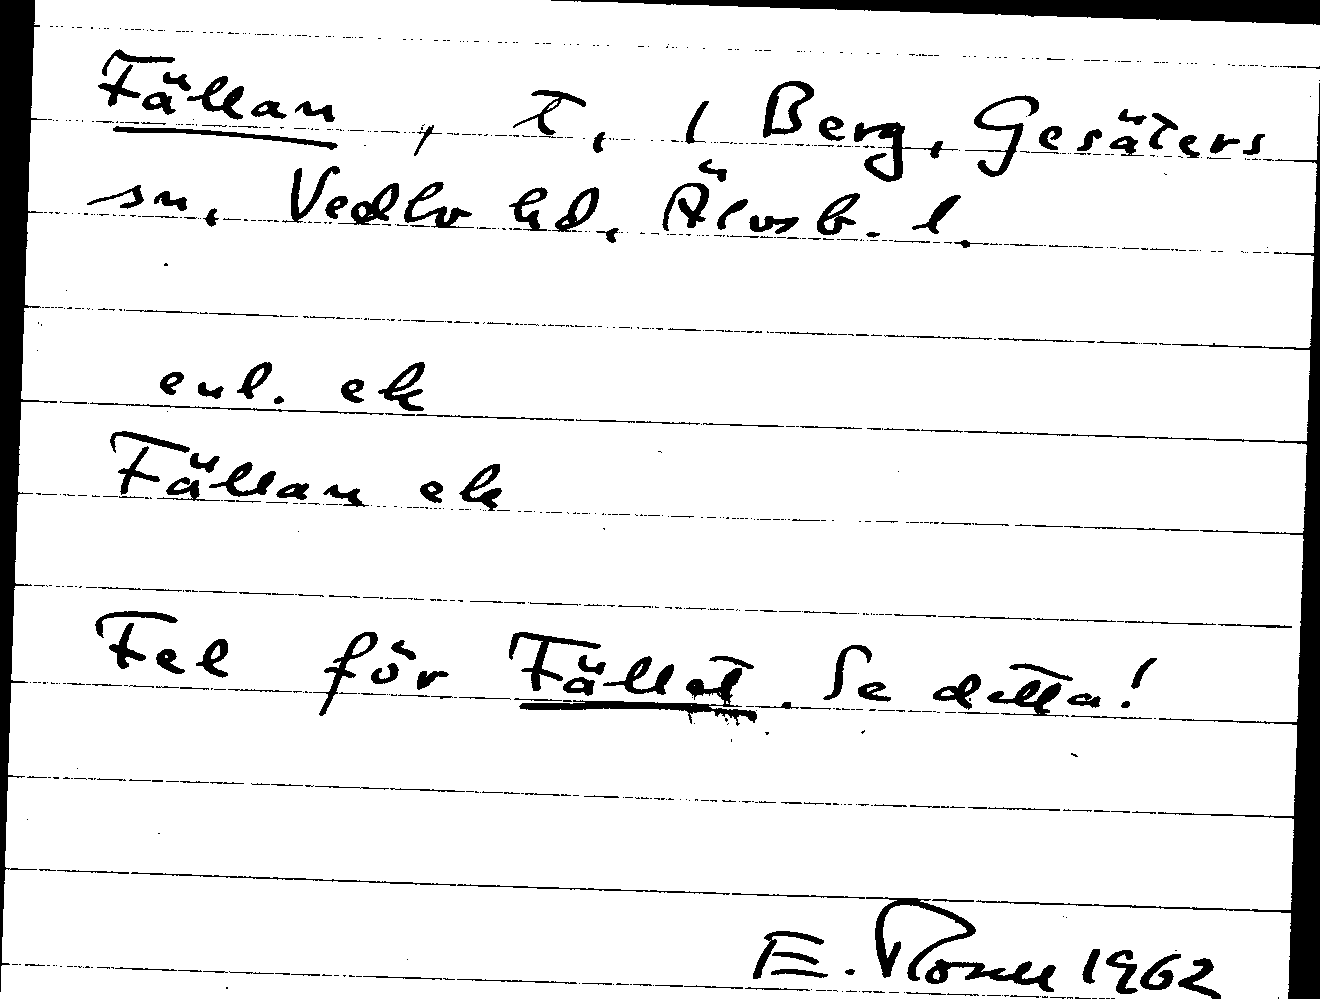 Fällan, t, i Berg, Gesäters
sn, Vedbo hd, Älvsb. l.
enl. ek
Fällan ek
Fel för Fället. Se detta!
E. 1962